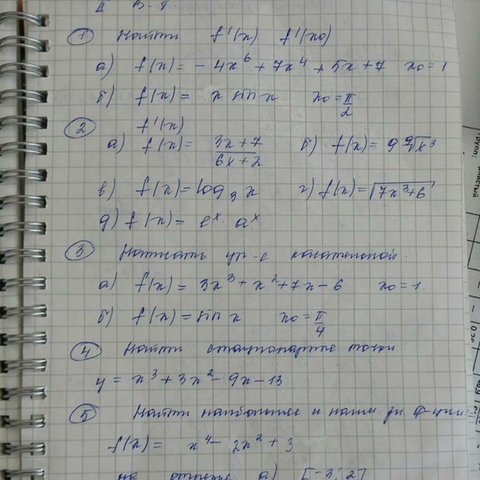 ① Найти f'(x) f'(x₀)
а) f(x) = -4x⁶ + 7x⁴ + 5x + 7 x₀ = 1
б) f(x) = x sin x x₀ = π/2
② f'(x)
а) f(x) = (3x+7)/(6x+2) б) f(x) =
в) f(x) = log₃ x г) f(x) = √(7x³+6)
д) f(x) = eˣ · aˣ
③ Написать ур-е касательной
а) f(x) = 3x³ + x² + 7x - 6 x₀ = 1
б) f(x) = sin x x₀ = π/4
④ Найти стационарные точки
y = x³ + 3x² - 9x - 13
⑤ Найти наибольшее и наим зн ф-ции
f(x) = x⁴ - 2x² + 3
на отрезке а) [-3; 2]